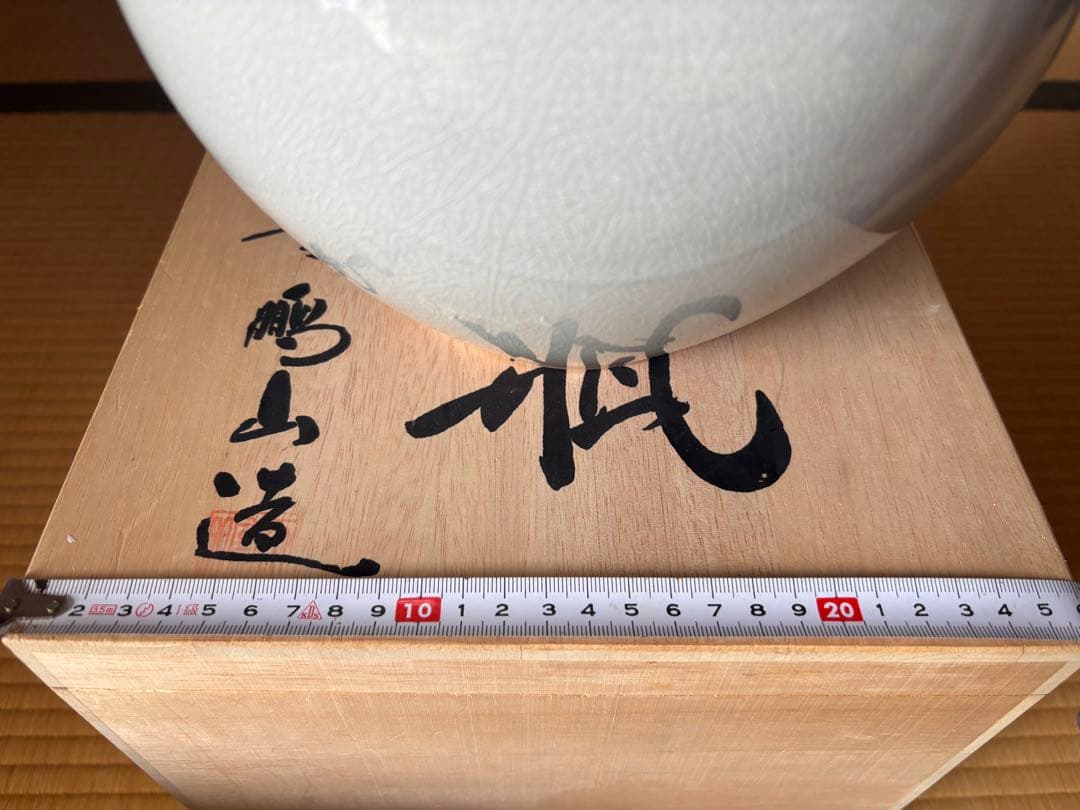 瓶
鵬山造
2 3.5m 3 4 5 6 7 KDS 8 9 10 1 2 3 4 5 6 7 8 9 20 1 2 3 4 5